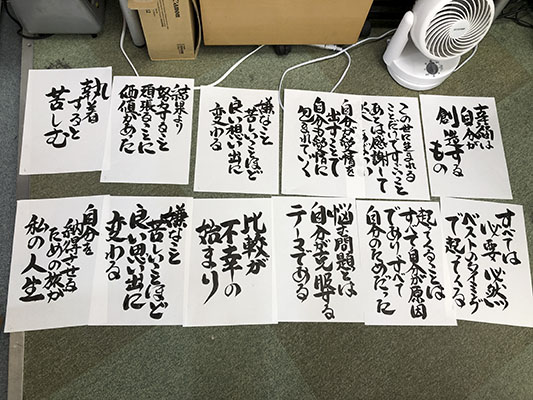 幸福は
自分が
創造する
もの
この世に生まれる
ことだけですごいこと
あとは感謝して
自分が愛情を
出すことで
自分も愛情に
包まれていく
嫌なこと
苦しいことほど
良い想い出に
変わる
結果より
努力すること
頑張ることに
価値があった
執着
すると
苦しむ
すべては
必要 必然
ベストのタイミング
で起ってくる
起ってくることは
すべて自分が原因
であり、すべて
自分のためだった
悩む問題とは
自分が克服する
テーマである
比較が
不幸の
始まり
嫌なこと
苦しいことほど
良い思い出に
変わる
自分を
納得させる
ための旅が
私の人生